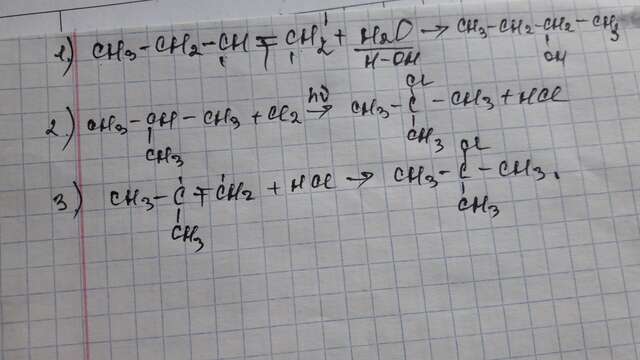 1.) CH3-CH2-CH=CH2 + H2O → CH3-CH2-CH2-CH3
H-OH
OH
Cl
2.) CH3-CH-CH3 + Cl2 hν → CH3-C-CH3 + HCl
CH3
CH3
Cl
3) CH3-C=CH2 + HCl → CH3-C-CH3.
CH3
CH3